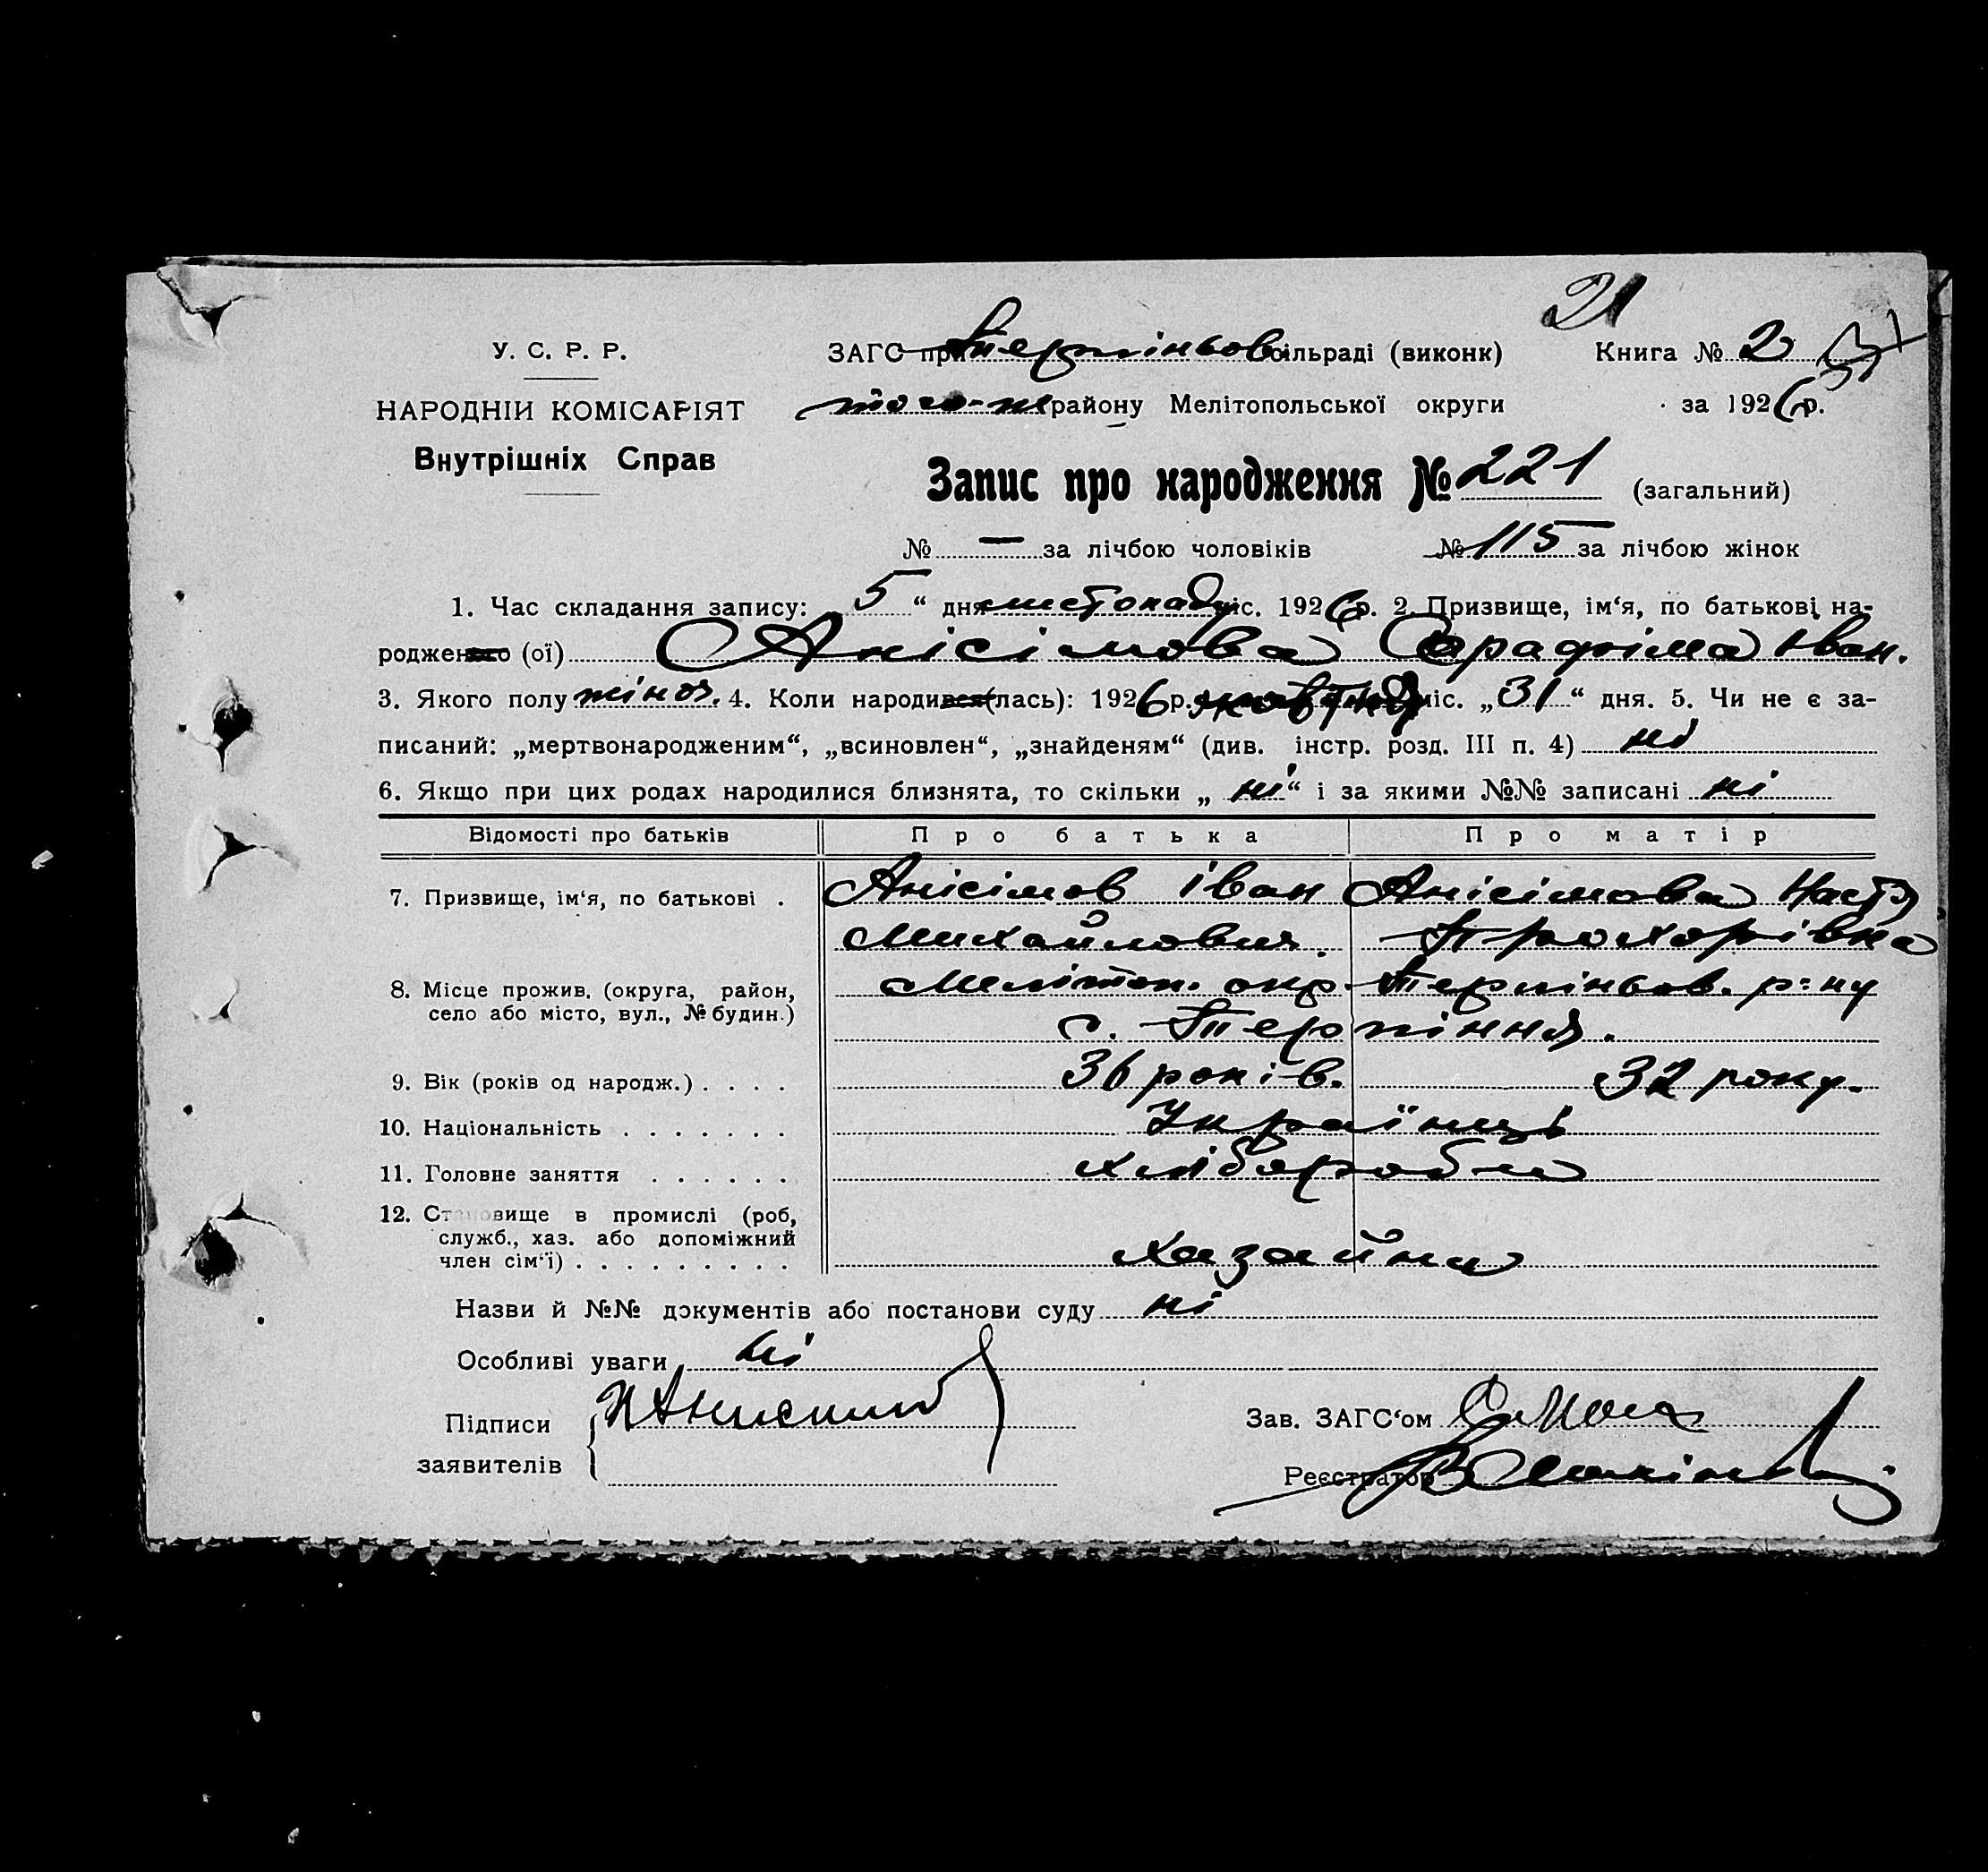 21
У. С. Р. Р.
ЗАГС при Терпіньов. сільраді (виконк) Книга № 2
НАРОДНІЙ КОМІСАРІЯТ
того-ж району Мелітопольської округи за 1926 р.
Внутрішніх Справ
Запис про народження № 221 (загальний)
№ — за лічбою чоловіків № 115 за лічбою жінок
1. Час складання запису: 5 “ дня листопаду міс. 1926 р. 2. Призвище, ім‘я, по батькові на-
родженого (ої) Анісімова Сарафіма Іван.
3. Якого полу жіноч. 4. Коли народився(лась): 1926 р. жовтня міс. „31“ дня. 5. Чи не є за-
писаний: „мертвонародженим“, „всиновлен“, „знайденям“ (див. інстр. розд. III п. 4) ні
6. Якщо при цих родах народилися близнята, то скільки „ ні“ і за якими №№ записані ні
Відомості про батьків Про батька Про матір
7. Призвище, ім‘я, по батькові . Анісімов Іван Анісімова Настя
Михайлович. Прохорівна
8. Місце прожив. (округа, район, село або місто, вул., № будин.) Мелітоп. окр. Терпіньов. р-ну
с. Терпіння.
9. Вік (років од народж.) . . . . 36 років. 32 року.
10. Національність . . . . . . . Українці
11. Головне заняття . . . . . . хлібороби
12. Становище в промислі (роб,
служб., хаз. або допоміжний
член сім‘ї) . . . . . . . . . Хазайни
Назви й №№ документів або постанови суду ні
Особливі уваги ні
Підписи
заявителів
Зав. ЗАГС‘ом
Реєстратор